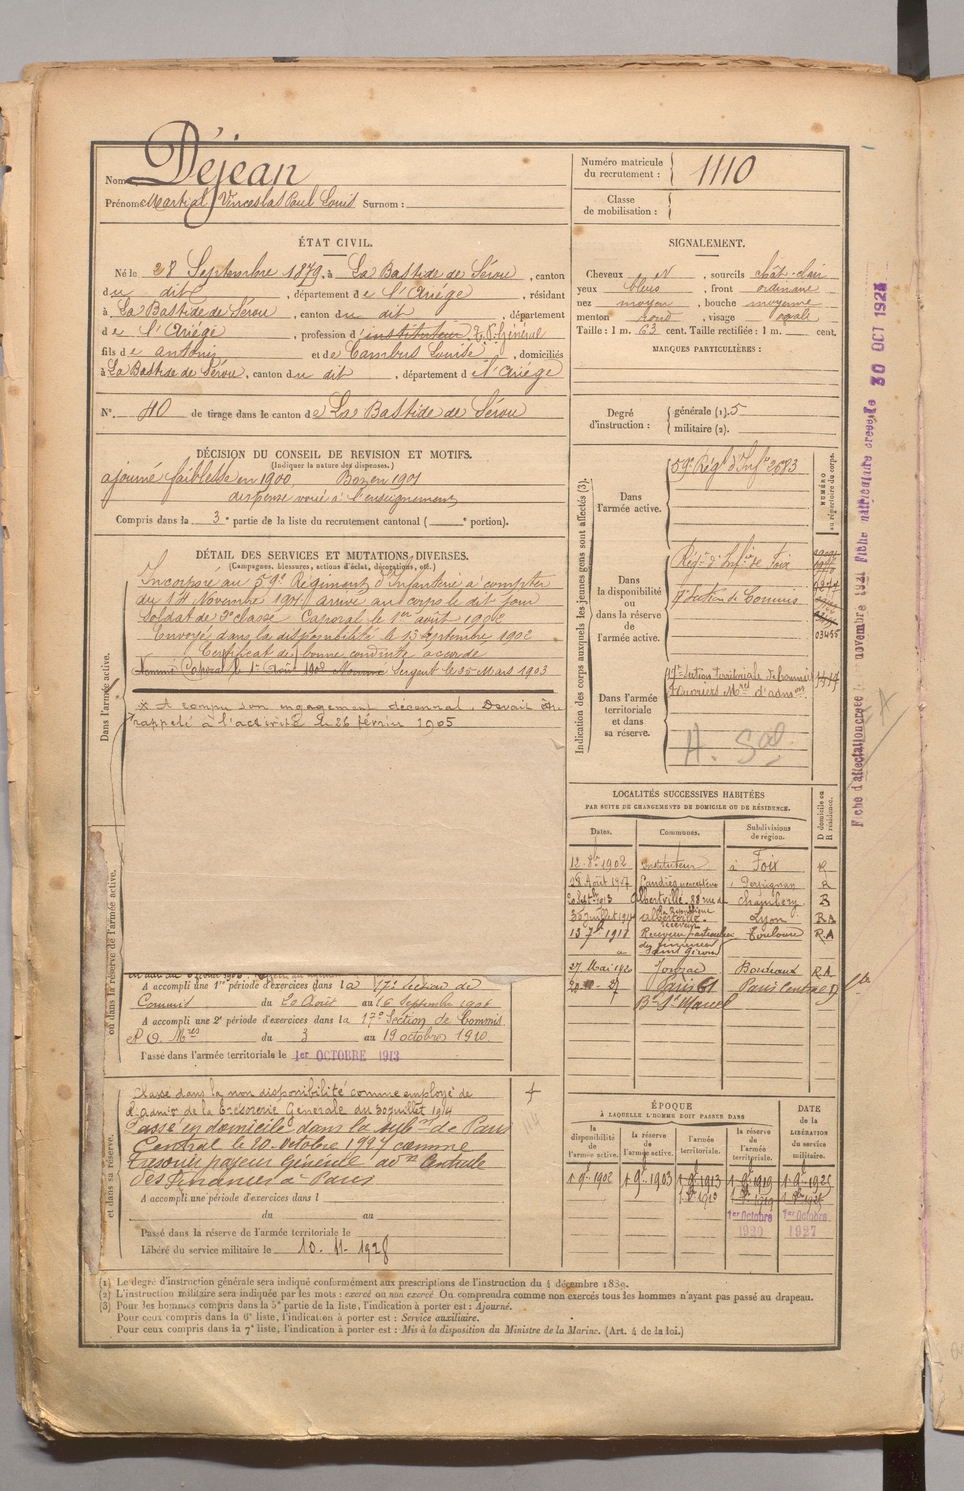 Nom Déjean
Prénoms Martial Vinceslas Paul Louis Surnom :
Numéro matricule du recrutement : 1110
Classe de mobilisation :
ÉTAT CIVIL.
Né le 28 Septembre 1879, à La Bastide de Sérou, canton
du dit, département de l'Ariége, résidant
à La Bastide de Sérou, canton du dit, département
de l'Ariége, profession d'instituteur T. P. Général
fils de antonin et de Cambus Louise, domiciliés
à La Bastide de Sérou, canton du dit, département de l'Ariége
N° 40 de tirage dans le canton de La Bastide de Sérou
SIGNALEMENT.
Cheveux et, sourcils chât-clair
yeux bleus, front ordinaire
nez moyen, bouche moyenne
menton rond, visage ovale
Taille : 1 m. 63 cent. Taille rectifiée : 1 m. cent.
MARQUES PARTICULIÈRES :
Degré d'instruction : générale (1). 5
militaire (2).
DÉCISION DU CONSEIL DE REVISION ET MOTIFS.
(Indiquer la nature des dispenses.)
ajourné faiblesse en 1900, Bon en 1901
dispensé voué à l'enseignement
Compris dans la 3e partie de la liste du recrutement cantonal ( e portion).
DÉTAIL DES SERVICES ET MUTATIONS DIVERSES.
(Campagnes, blessures, actions d'éclat, décorations, etc.)
Dans l'armée active.
Incorporé au 59e Régiment d'Infanterie à compter
du 14 Novembre 1901 arrivé au corps le dit jour
Soldat de 2e classe Caporal le 1er août 1902
Envoyé dans la disponibilité le 13 septembre 1902
Certificat de bonne conduite accordé
Nommé Caporal le 1er Août 1902 Nommé Sergent le 25 Mars 1903
A rompu son engagement décennal. Devait être
rappelé à l'activité le 26 février 1905
ou dans la réserve de l'armée active.
A accompli une 1re période d'exercices dans la 17e section de
Commis du 20 Août au 16 Septembre 1906
A accompli une 2e période d'exercices dans la 17e Section de Commis
et O. Mres du 3 au 19 octobre 1910
Passé dans l'armée territoriale le 1er OCTOBRE 1913
et dans sa réserve.
Classé dans la non disponibilité comme employé de
d'admir de la Trésorerie Générale du 30 juillet 1914
Passe en domicile dans la subon de Paris
Central le 20 Octobre 1927 comme
Trésorier payeur Général à Centrale
des Finances à Paris
A accompli une période d'exercices dans l
du au
Passé dans la réserve de l'armée territoriale le
Libéré du service militaire le 10. 11. 1928
Indication des corps auxquels les jeunes gens sont affectés (3).
NUMÉRO au répertoire du corps.
Dans l'armée active.
59e Régt d'Infie 2583
Dans la disponibilité ou dans la réserve de l'armée active.
Régt d'Infie de Foix
17e Section de Commis
03455
Dans l'armée territoriale et dans sa réserve.
17e Section territoriale de Commis
et Ouvriers Mres d'admon
LOCALITÉS SUCCESSIVES HABITÉES
PAR SUITE DE CHANGEMENTS DE DOMICILE OU DE RÉSIDENCE.
Dates. Communes. Subdivisions de région. D domicile ou R résidence.
12 8bre 1902 Instituteur à Foix R
28 Août 1907 Caudiès percepteur Perpignan R
20 Septbre 1913 Albertville 88 rue de la République Chambéry R
Albertville Lyon RA
13 7bre 1918 Receveur particulier des finances Saint Girons Toulouse R.A
27 Mai 192 Jonzac Bordeaux R.A
Paris 61 Bd St Marcel Paris Central D
ÉPOQUE
À LAQUELLE L'HOMME DOIT PASSER DANS
DATE DE LA LIBÉRATION du service militaire.
la disponibilité de l'armée active. la réserve de l'armée active. l'armée territoriale. la réserve de l'armée territoriale.
1 9bre 1902 1 9bre 1903 1 9bre 1913 1 9bre 1919 1 9bre 1925
1er Octobre 1920 1er Octobre 1927
Fiche d'affectation créée le novembre 1921 Fiche matriculaire créée le 30 OCT 1923
(1) Le degré d'instruction générale sera indiqué conformément aux prescriptions de l'instruction du 4 décembre 1889.
(2) L'instruction militaire sera indiquée par les mots : exercé ou non exercé. On comprendra comme non exercés tous les hommes n'ayant pas passé au drapeau.
(3) Pour les hommes compris dans la 5e partie de la liste, l'indication à porter est : Ajourné.
Pour ceux compris dans la 6e liste, l'indication à porter est : Service auxiliaire.
Pour ceux compris dans la 7e liste, l'indication à porter est : Mis à la disposition du Ministre de la Marine. (Art. 4 de la loi.)